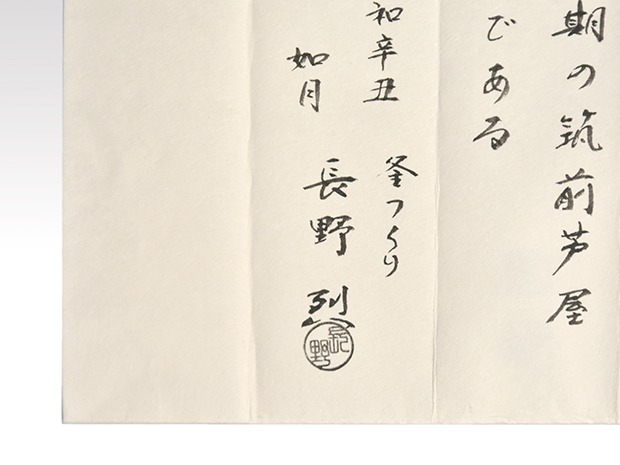 期の筑前芦屋
である
和辛丑
如月
釜つくり
長野 烈
長野